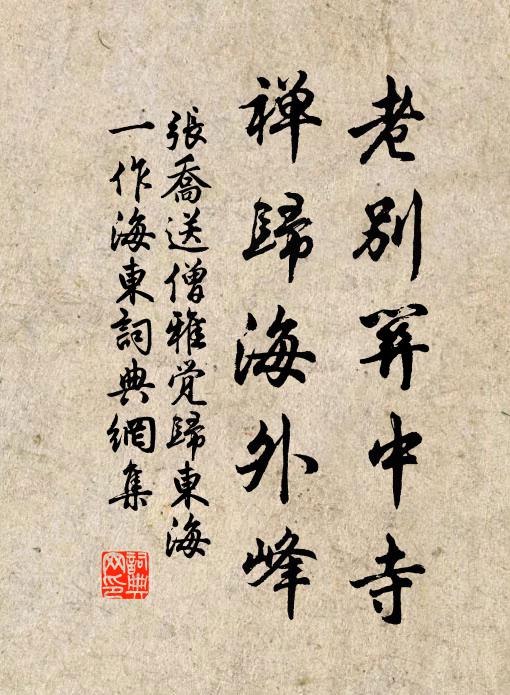 老別關中寺
禅歸海外峰
張喬送僧雅覚歸東海
一作海東詞典網集
詞典
网印